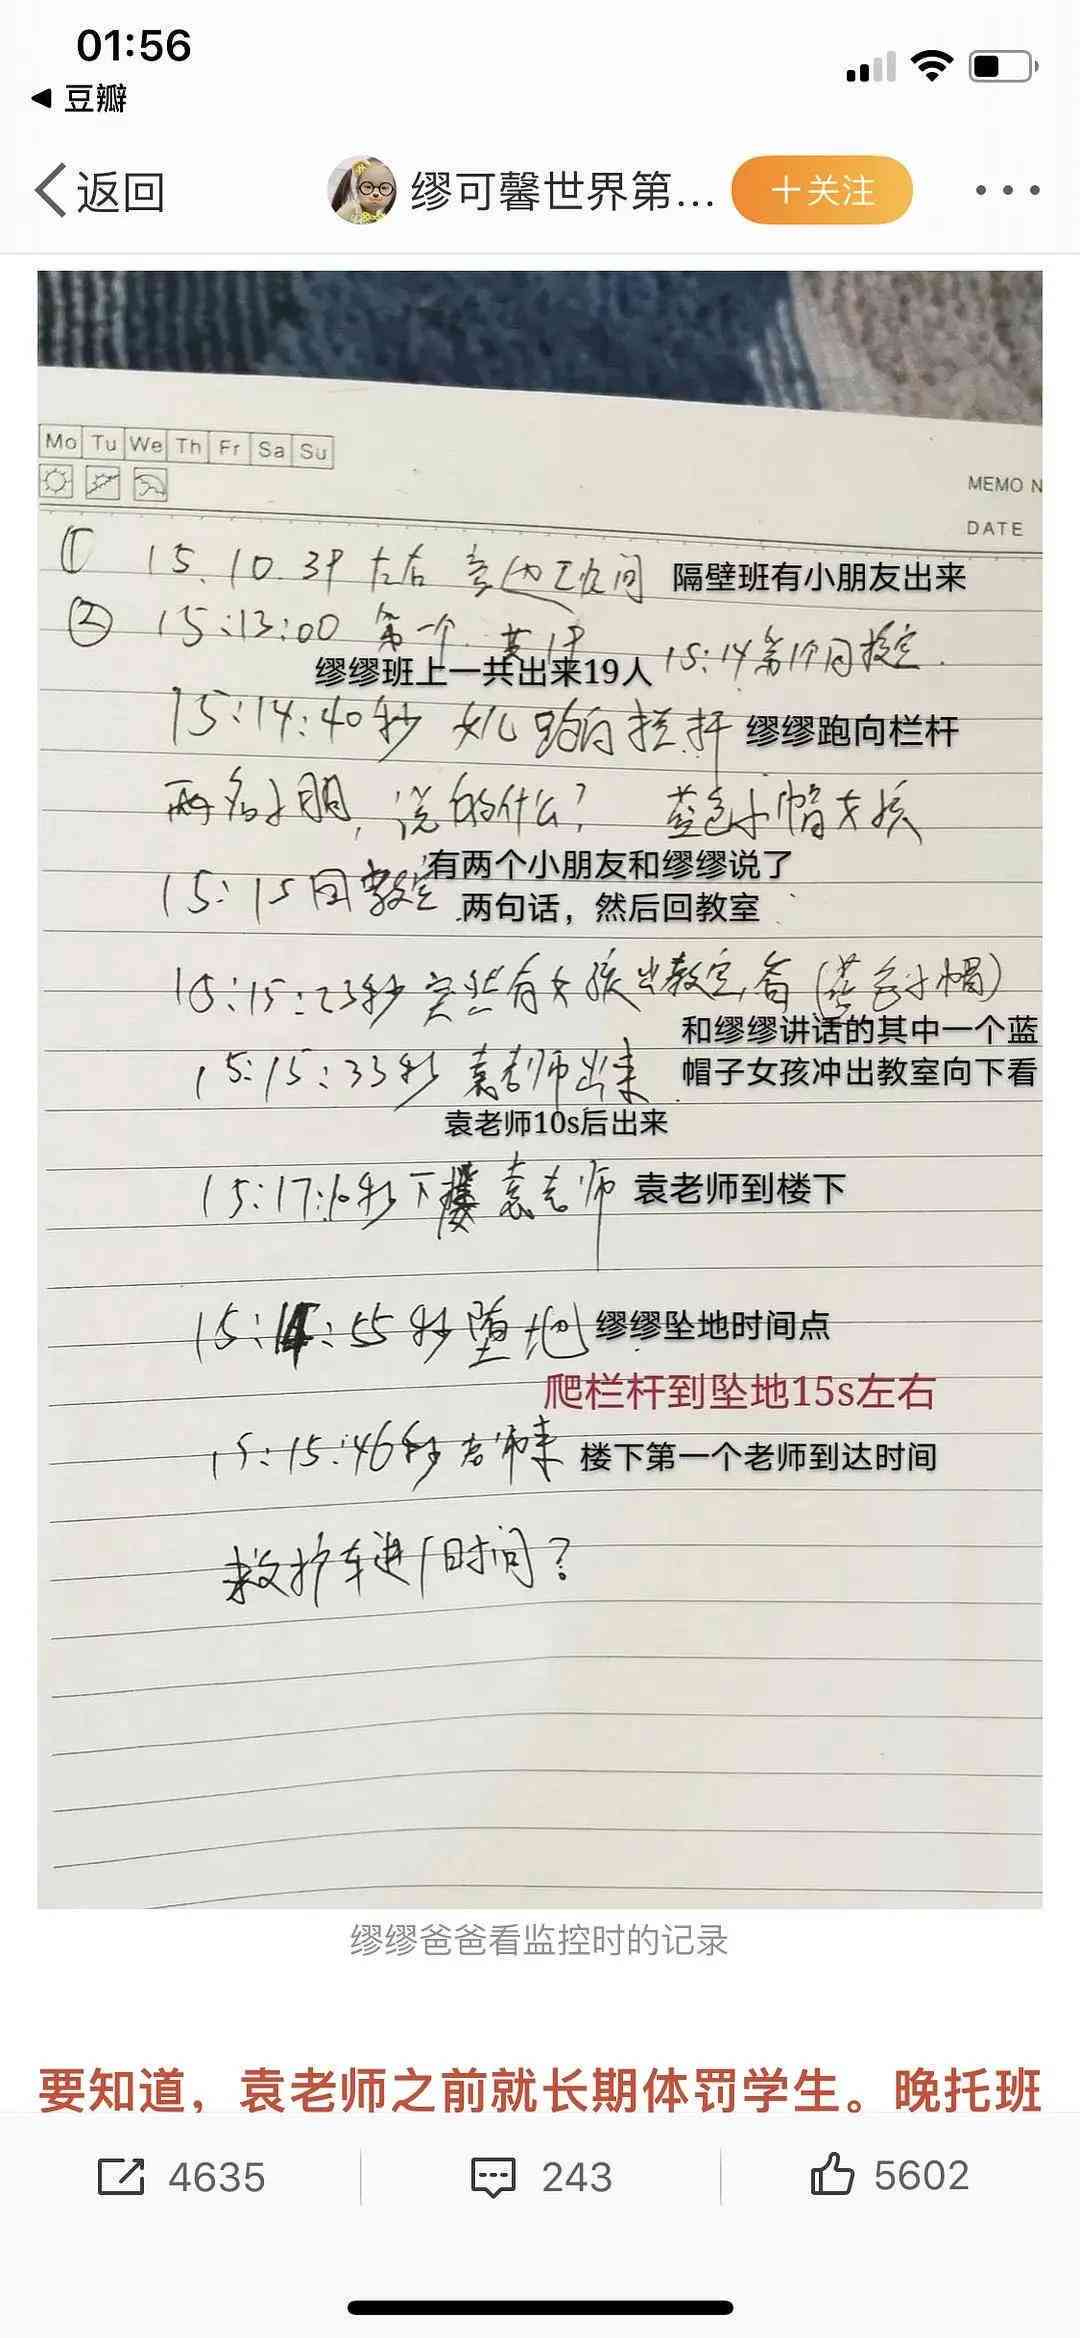 01:56
豆瓣
返回
缪可馨世界第...
十关注
Mo Tu We Th Fr Sa Su
MEMO N
DATE
① 15.10.39 左右 旁边卫生间
隔壁班有小朋友出来
② 15:13:00 第一个
15:14 第
缪缪班上一共出来19人
15:14:40秒 女儿跑向栏杆
缪缪跑向栏杆
两名小朋, 说的什么? 蓝色小帽女孩
15:15回教室
有两个小朋友和缪缪说了
两句话，然后回教室
15:15:23秒 突然有女孩出教室,看(蓝色小帽)
和缪缪讲话的其中一个蓝
帽子女孩冲出教室向下看
15:15:33秒 袁老师出来
袁老师10s后出来
15:17:10秒 下楼 袁老师
袁老师到楼下
15:14:55秒堕地
缪缪坠地时间点
爬栏杆到坠地15s左右
15:15:46秒老师来
楼下第一个老师到达时间
救护车进 时间?
缪缪爸爸看监控时的记录
要知道，袁老师之前就长期体罚学生。晚托班
4635
243
5602